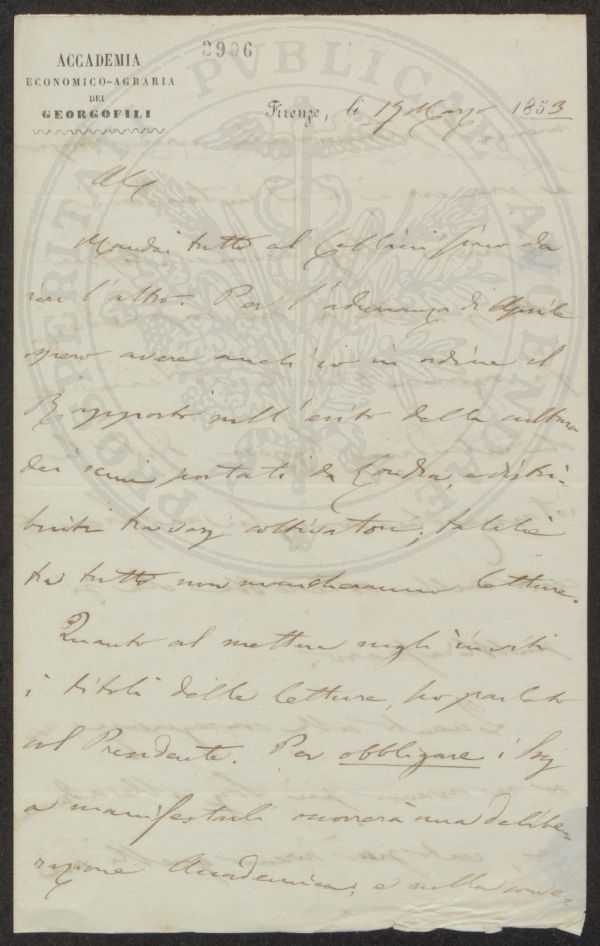 2906
ACCADEMIA
ECONOMICO-AGRARIA
DEI
GEORGOFILI
Firenze, li 19 Marzo 1853
Mandai tutto al Cellini fino da
ieri l'altro. Per l'adunanza di Aprile
spero avere anch'io in ordine il
Rapporto sull'esito della cultura
dei semi portati da Londra, e distri-
buiti tra varj coltivatori; talchè
tra tutto non mancheranno letture.
Quanto al mettere negli inviti
i titoli delle letture, ho parlato
col Presidente. Per obbligare i Sigg
a manifestarli occorrerà una delibe-
razione Accademica; e nella
PROSPERITATI PVBLICAE AVGENDAE